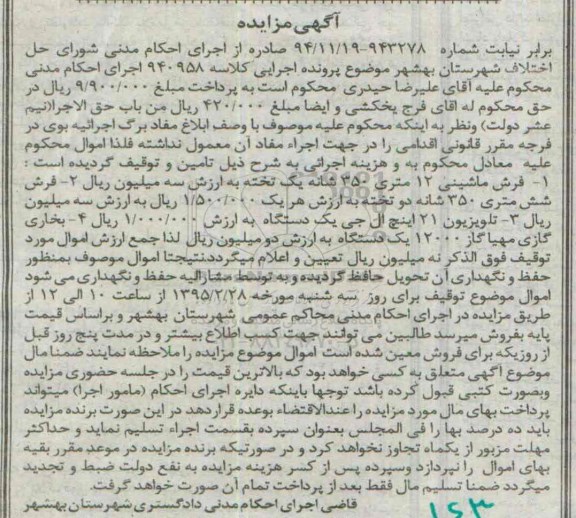 آگهی مزایده
برابر نیابت شماره ۹۴۳۲۷۸-۹۴/۱۱/۱۹ صادره از اجرای احکام مدنی شورای حل
اختلاف شهرستان بهشهر موضوع پرونده اجرایی کلاسه ۹۴۰۹۵۸ اجرای احکام مدنی
محکوم علیه آقای علیرضا حیدری محکوم است به پرداخت مبلغ ۹/۹۰۰/۰۰۰ ریال در
حق محکوم له اقای فرج یخکشی و ایضا مبلغ ۴۲۰/۰۰۰ ریال من باب حق الاجرا(نیم
عشر دولت) ونظر به اینکه محکوم علیه موصوف با وصف ابلاغ مفاد برگ اجرائیه بوی در
فرجه مقرر قانونی اقدامی را در جهت اجراء مفاد آن معمول نداشته فلذا اموال محکوم
علیه معادل محکوم به و هزینه اجرائی به شرح ذیل تامین و توقیف گردیده است :
۱- فرش ماشینی ۱۲ متری ۳۵۰ شانه یک تخته به ارزش سه میلیون ریال ۲- فرش
شش متری ۳۵۰ شانه دو تخته به ارزش هر یک ۱/۵۰۰/۰۰۰ ریال به ارزش سه میلیون
ریال ۳- تلویزیون ۲۱ اینچ ال جی یک دستگاه به ارزش ۱/۰۰۰/۰۰۰ ریال ۴- بخاری
گازی مهیا گاز ۱۲۰۰۰ یک دستگاه به ارزش دو میلیون ریال لذا جمع ارزش اموال مورد
توقیف فوق الذکر نه میلیون ریال تعیین و اعلام میگردد.نتیجتا اموال موصوف بمنظور
حفظ و نگهداری آن تحویل حافظ گردیده و به توسط مشارالیه حفظ و نگهداری می شود
اموال موضوع توقیف برای روز سه شنبه مورخه ۱۳۹۵/۲/۲۸ از ساعت ۱۰ الی ۱۲ از
طریق مزایده در اجرای احکام مدنی محاکم عمومی شهرستان بهشهر و براساس قیمت
پایه بفروش میرسد طالبین می توانند جهت کسب اطلاع بیشتر و در مدت پنج روز قبل
از روزیکه برای فروش معین شده است اموال موضوع مزایده را ملاحظه نمایند ضمنا مال
موضوع آگهی متعلق به کسی خواهد بود که بالاترین قیمت را در جلسه حضوری مزایده
وبصورت کتبی قبول کرده باشد توجها باینکه دایره اجرای احکام (مامور اجرا) میتواند
پرداخت بهای مال مورد مزایده را عندالاقتضاء بوعده قراردهد در این صورت برنده مزایده
باید ده درصد بها را فی المجلس بعنوان سپرده بقسمت اجراء تسلیم نماید و حداکثر
مهلت مزبور از یکماه تجاوز نخواهد کرد و در صورتیکه برنده مزایده در موعد مقرر بقیه
بهای اموال را نپردازد وسپرده پس از کسر هزینه مزایده به نفع دولت ضبط و تجدید
میگردد ضمنا تسلیم مال فقط بعد از پرداخت تمام آن صورت خواهد گرفت.
قاضی اجرای احکام مدنی دادگستری شهرستان بهشهر
۱۶۳